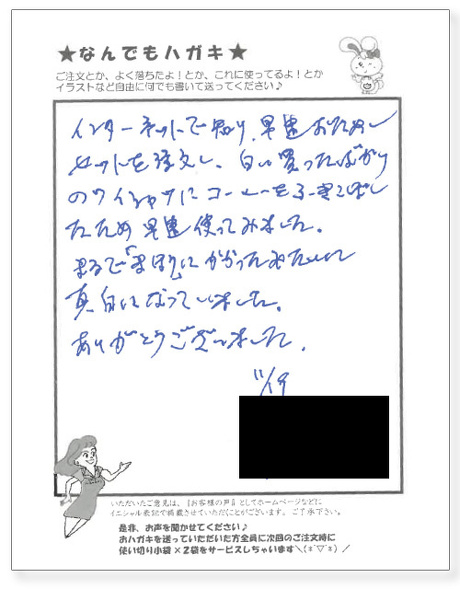 ★なんでもハガキ★
ご注文とか、よく落ちたよ！とか、これに使ってるよ！とか
イラストなど自由に何でも書いて送ってください♪
インターネットで知り、早速おためし
セットを注文し、白い買ったばかり
のワイシャツにコーヒーをふきこぼし
たため早速使ってみました。
まるで「まほう」にかかったみたいに
真白になっていました。
ありがとうございました。
11/19
いただいたご意見は、『お客様の声』としてホームページなどに
イニシャル表記で掲載させていただくことがございます。ご了承下さい。
是非、お声を聞かせてください♪
おハガキを送っていただいた方全員に次回のご注文時に
使い切り小袋×2袋をサービスしちゃいます＼(*ﾟ▽ﾟ*)／